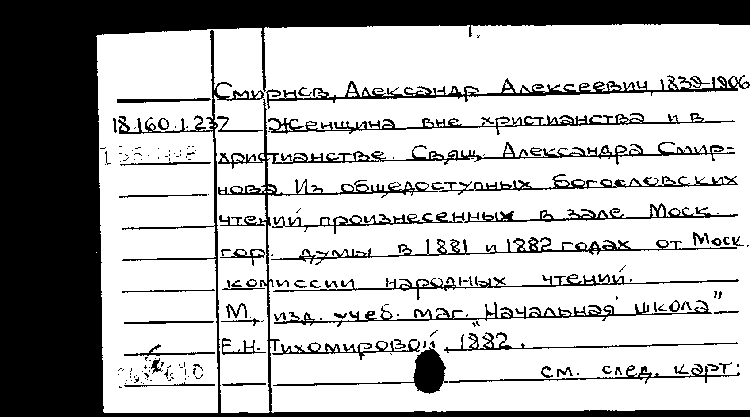 1.
Смирнов, Александр Алексеевич, 1839-1906
18.160.1.237 Женщина вне христианства и в
христианстве. Свящ. Александра Смир-
нова. Из общедоступных богословских
чтений, произнесенных в зале Моск.
гор. думы в 1881 и 1882 годах от Моск.
комиссии народных чтений.
М., изд. учеб. маг. "Начальная школа"
Е.Н. Тихомировой, 1882.
см. след. карт: